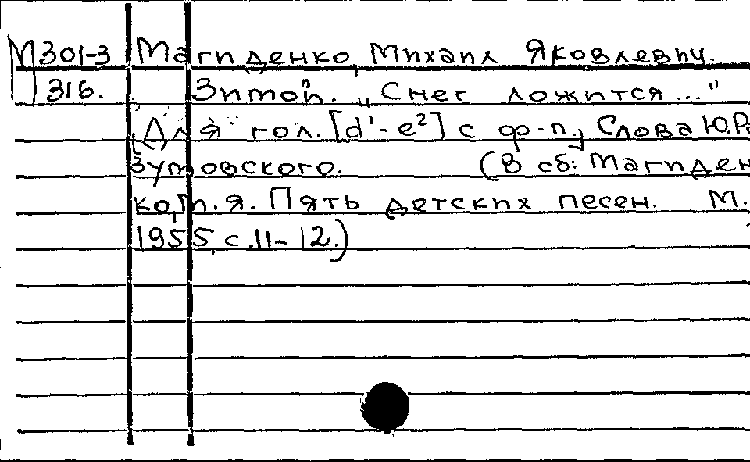 М301-3 Магиденко, Михаил Яковлевич.
316. Зимой. „Снег ложится..."
[Для гол. [d'-e²] с ф-п.] Слова Ю.Р.
Зумовского. (В сб: Магиден
ко, М.Я. Пять детских песен. М.,
1955, с.11-12.)